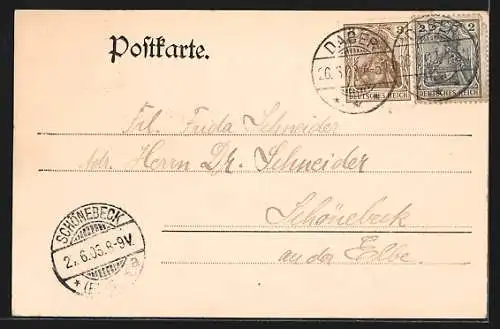 Postkarte.
DABER
26.6.05
3
DEUTSCHES REICH
2 2
DEUTSCHES REICH
Frl. Frida Schneider
Adr. Herrn Dr. Schneider
Schönebeck
an der Elbe.
SCHÖNEBECK
27.6.05.8-9V.
* (E
a